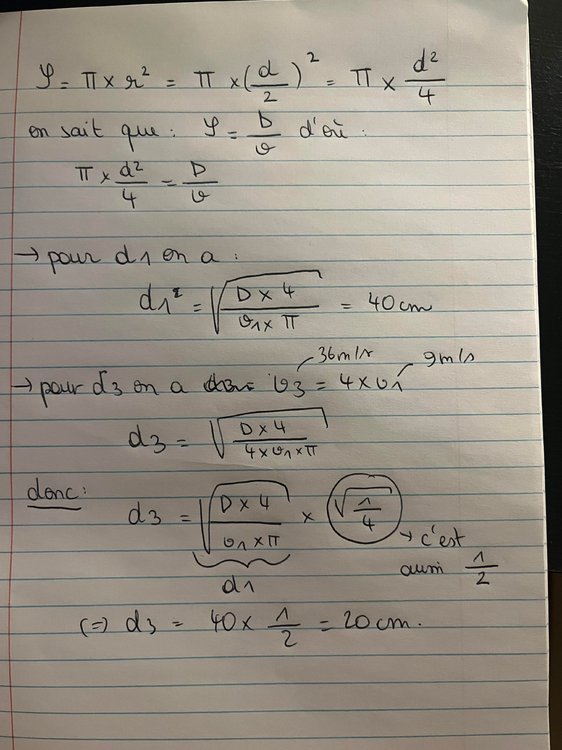 φ = π × r² = π × (d/2)² = π × d²/4
on sait que : φ = D/v d'où :
π × d²/4 = D/v
→ pour d1 on a :
d1² = √(D × 4 / v1 × π) = 40 cm
36m/s 9m/s
→ pour d3 on a v3 = 4 × v1
d3 = √(D × 4 / 4 × v1 × π)
donc :
d3 = √(D × 4 / v1 × π) × √(1/4)
→ c'est
aussi 1/2
d1
(=) d3 = 40 × 1/2 = 20 cm.